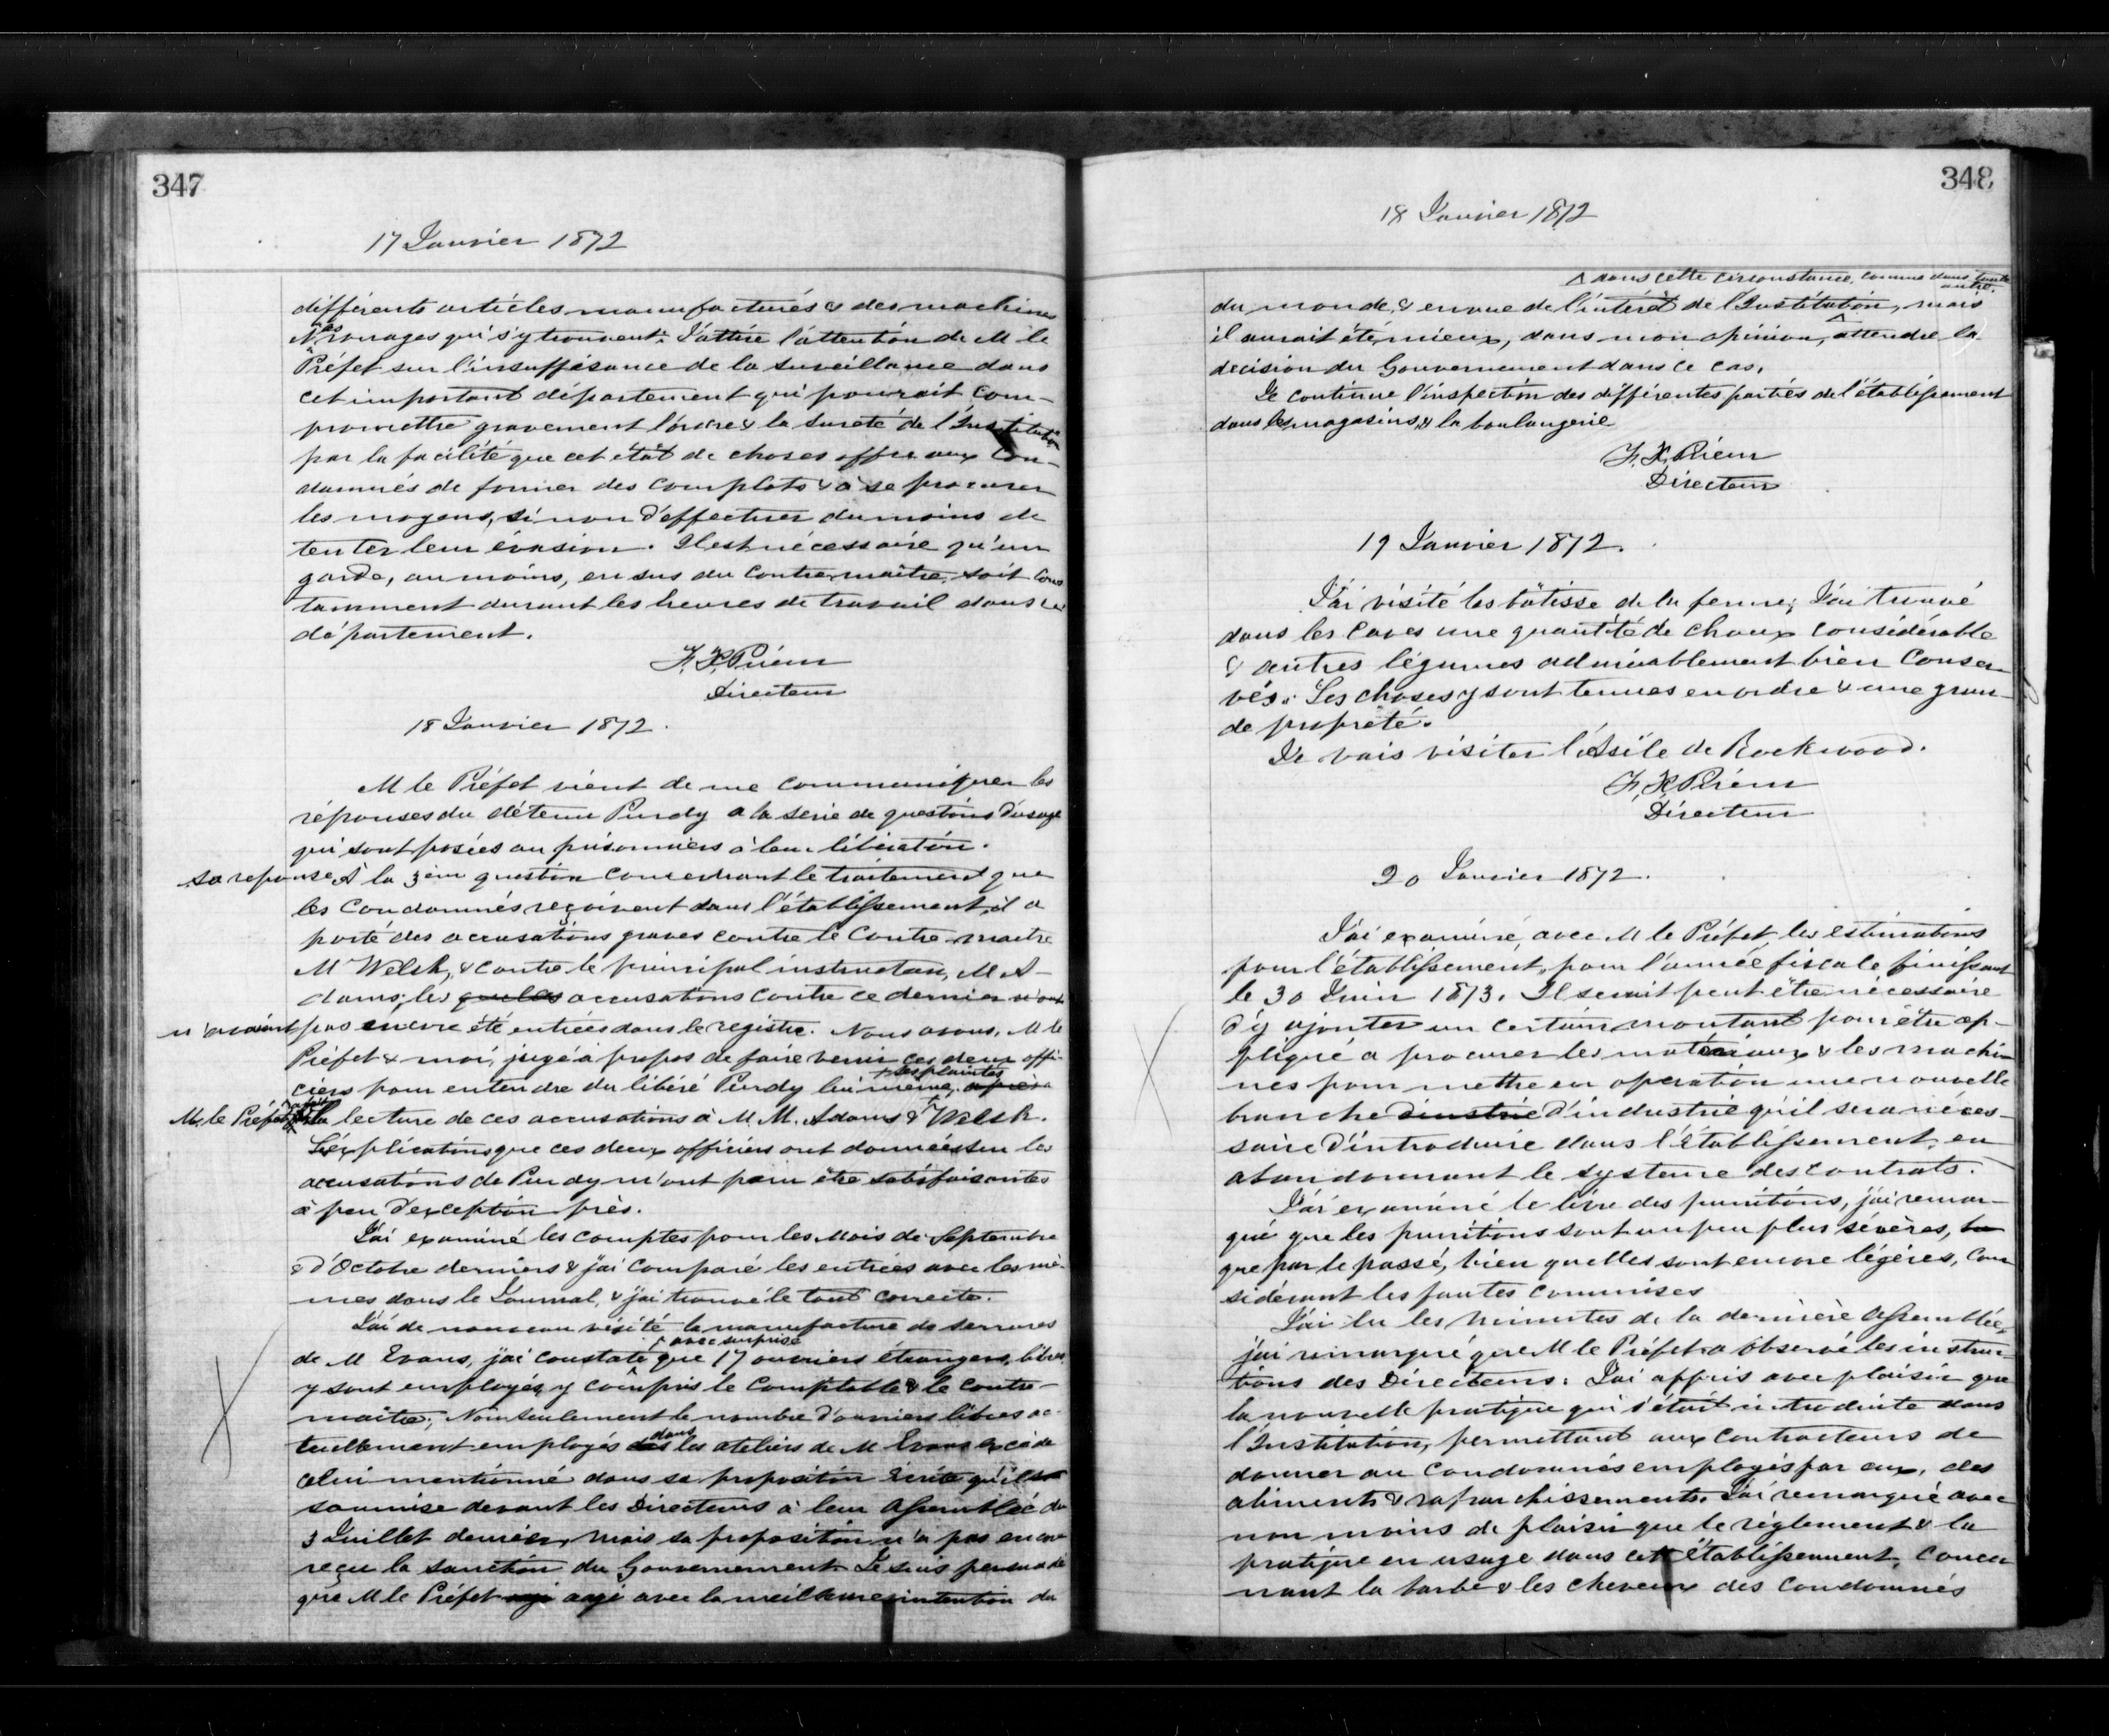 347
17 Janvier 1872
différents articles manufacturés & des machines
& rouages qui s'y trouvent. J'attire l'attention de M le
Préfet sur l'insuffisance de la surveillance dans
cet important département qui pourrait com-
promettre gravement l'ordre & la sureté de l'Institution
par la facilité que cet état de choses offre aux con-
damnés de former des complots & à se procurer
les moyens, si non d'effectuer du moins de
tenter leur évasion. Il est nécessaire qu'un
garde, au moins, en sus du contre-maître, soit cons
tamment durant les heures de travail dans ce
département.
F. X. Prieur
Directeur
18 Janvier 1872.
M le Préfet vient de me communiquer les
réponses du détenu Purdy a la serie de questions d'usage
qui sont posées au prisonniers à leur libération.
sa reponse À la 3eme question concernant le traitement que
les condamnés reçoivent dans l'établissement, il a
porté des accusations graves contre le Contre-maitre
M Welsh, & contre le principal instructeur, M A-
dams; les quelles accusations contre ce dernier n'ont
n'avaient pas encore été entrées dans le registre. Nous avons, M le
Préfet & moi, jugé à propos de faire venir ces deux offi-
ciers pour entendre du libéré Purdy lui même, après
ses plaintes
M. le Préfet a fait la lecture de ces accusations à M. M. Adams & Welsh.
Les explications que ces deux officiers ont données sur les
accusations de Purdy m'ont paru être satisfaisantes
à peu d'exception près.
J'ai examiné les comptes pour les Mois de Septembre
& d'Octobre derniers & j'ai comparé les entrées avec les mê-
mes dans le Journal, & j'ai trouvé le tout correcte.
J'ai de nouveau visité la manufacture de serrures
de M Evans, j'ai constaté avec surprise que 17 ouvriers étrangers, libres
y sont employés, y compris le comptable & le contre-
maître; Non seulement le nombre d'ouvriers libres ac-
tuellement employés dans les ateliers de M Evans excède
celui mentionné dans sa proposition écrite qu'il a
soumise devant les Directeurs à leur Assemblée du
3 Juillet dernier, mais sa proposition n'a pas encore
reçu la sanction du Gouvernement. Je suis persuadé
que M le Préfet agi avec la meilleure intention du
348
18 Janvier 1872
dans cette circonstance, comme dans toute
autre.
du monde, & en vue de l'intérêt de l'Institution, mais
il aurait été mieux, dans mon opinion, attendre la
decision du Gouvernement dans ce cas.
Je continue l'inspection des différentes parties de l'établissement
dans les magasins, & la boulangerie
F. X. Prieur
Directeur
19 Janvier 1872.
J'ai visité les bâtisse de la ferme; J'ai trouvé
dans les caves une quantité de choux considérable
& autres légumes admirablement bien conser-
vés. Les choses y sont tenues en ordre & une gran-
de propreté.
Je vais visiter l'Asile de Rockwood.
F. X. Prieur
Directeur
20 Janvier 1872.
J'ai examiné, avec M le Préfet, les estimations
pour l'établissement, pour l'année fiscale finissant
le 30 Juin 1873. Il serait peut être nécessaire
d'y ajouter un certain montant pour être ap-
pliqué a procurer les matériaux & les machi-
nes pour mettre en opération une nouvelle
branche d'industrie qu'il sera néces-
saire d'introduire dans l'établissement, en
abandonnant le systeme des contrats.
J'ai examiné le livre des punitions, j'ai remar-
qué que les punitions sont un peu plus sévères,
que par le passé, bien quelles sont encore légères, con
sidérant les fautes commises
J'ai lu les minutes de la dernière Assemblée,
j'ai remarqué que M le Préfet a observé les instruc-
tions des Directeurs. J'ai appris avec plaisir que
la nouvelle pratique qui s'était introduite dans
l'Institution, permettant aux contracteurs de
donner au condamnés employés par eux, des
aliments & rafraichissements. J'ai remarqué avec
non moins de plaisir que le règlement & la
pratique en usage dans cet établissement, concer
nant la barbe & les cheveux des condamnés